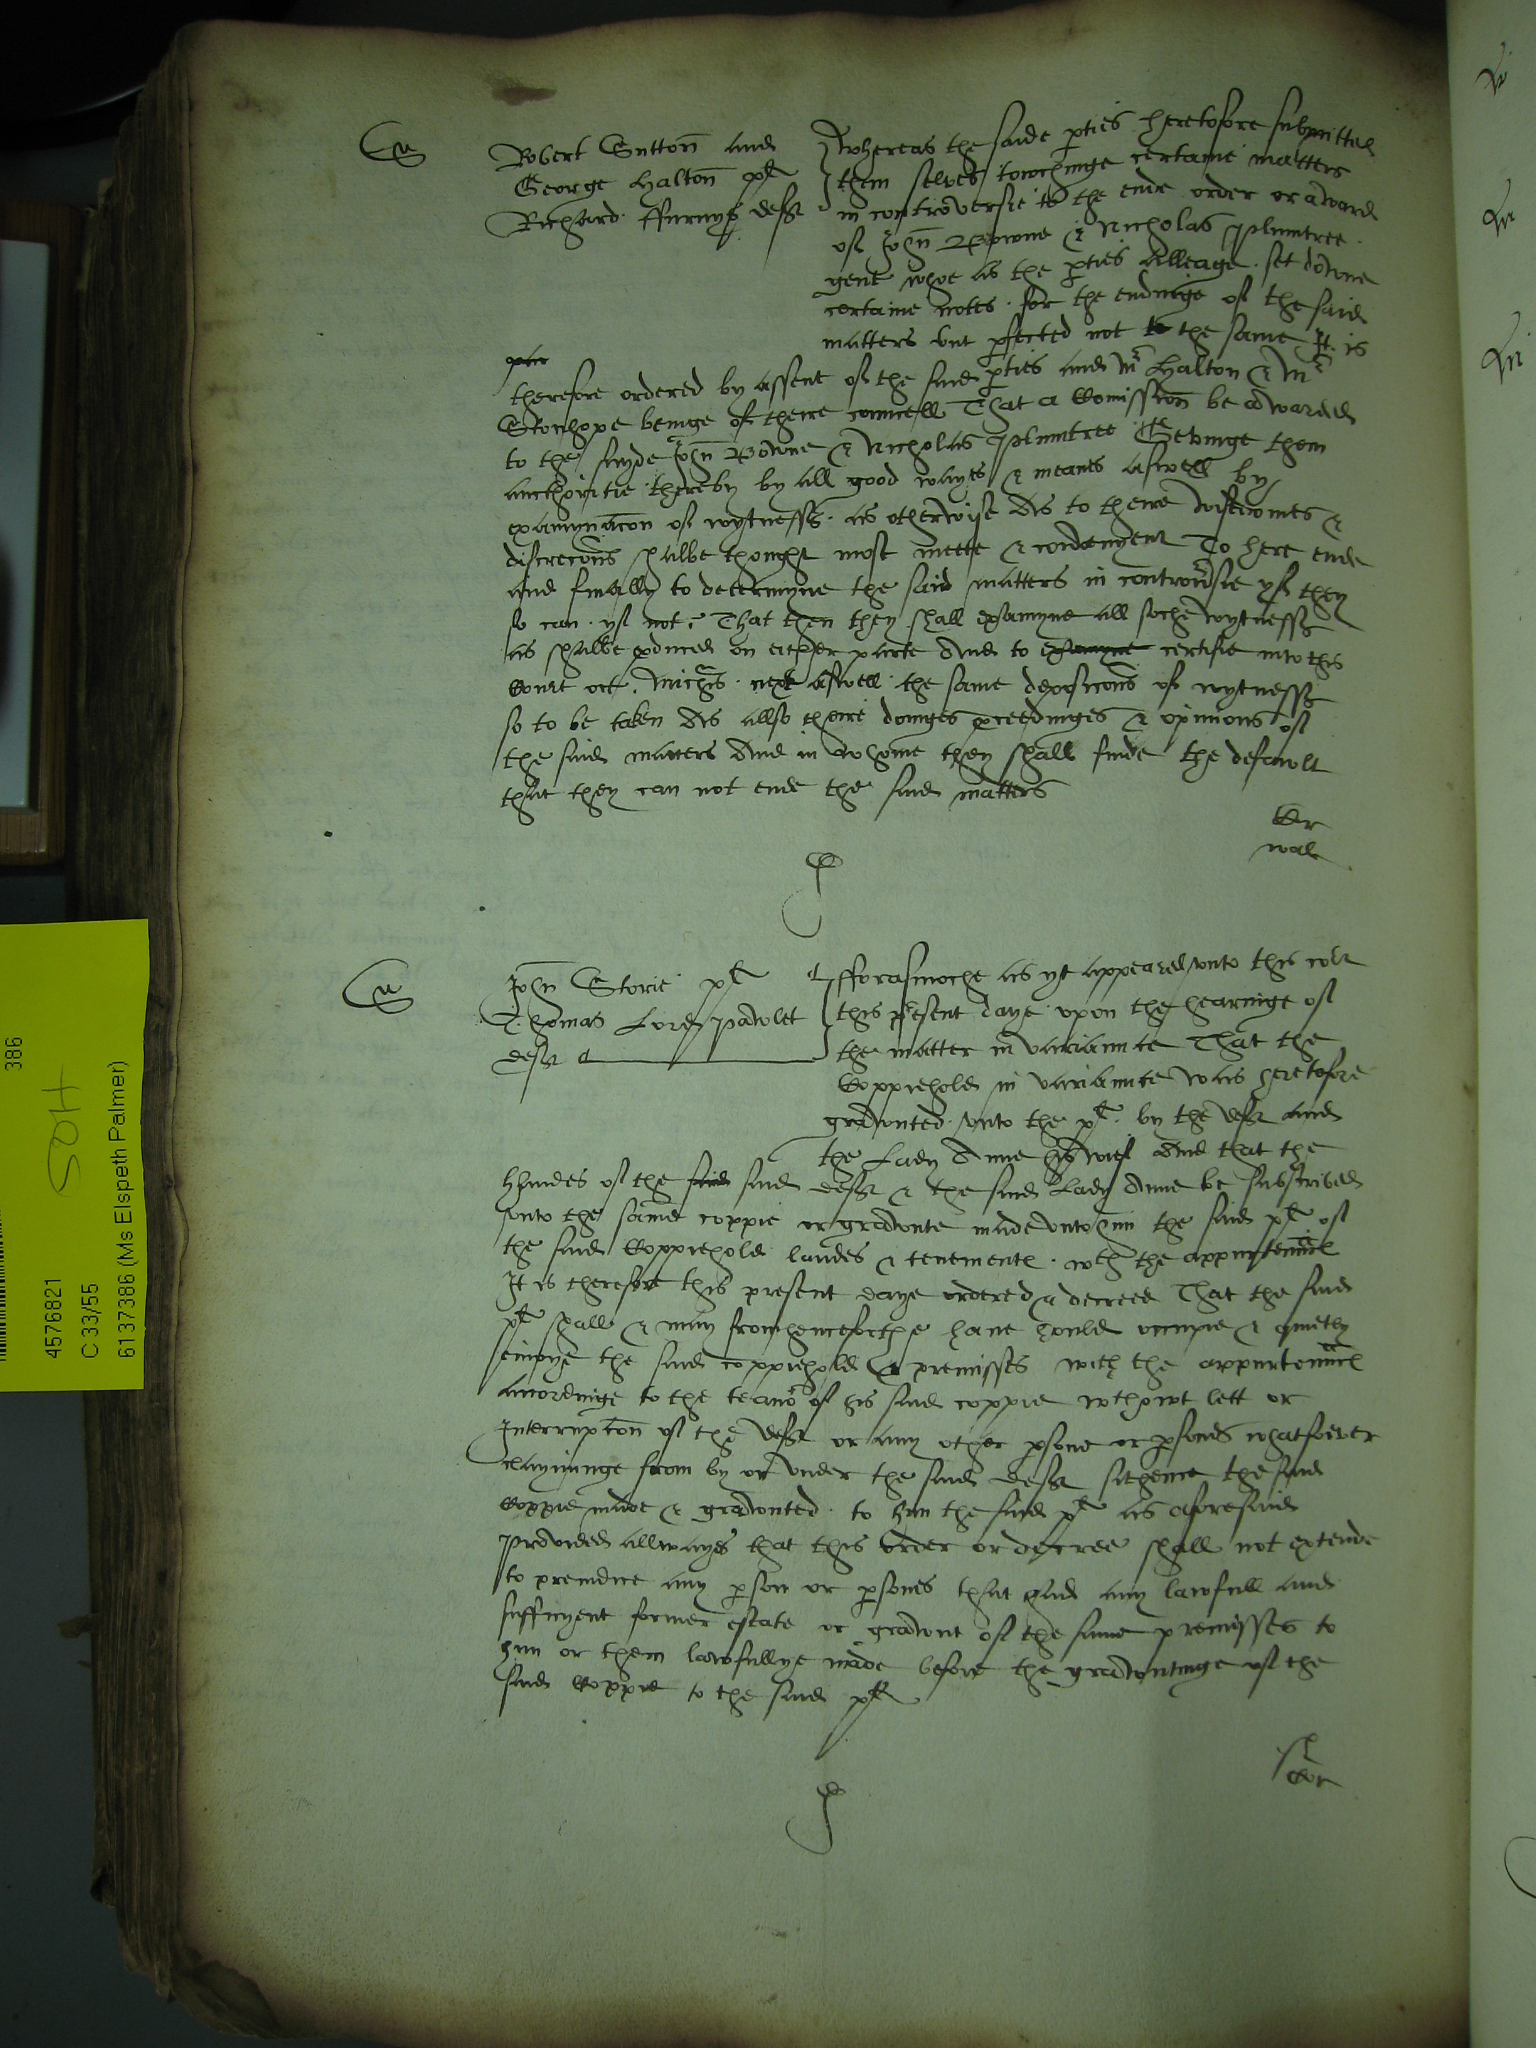 Robert Sutton and
George Halton pl
Richard ffurnys deft
Whereas the saide pties heretofore submitted
them selves towchinge certaine matters
in controversie to the ende order or award
of John Browne & Nicholas Plumtree
gent whoe as the pties alleage set downe
certaine notes for the endinge of the said
matters but pfected not the same It is
therefore ordered by assent of the said pties and Mr Halton & Mr
Stanhope beinge of theire councell That a Comission be awarded
to the sayde John Browne & Nicholas Plumtree Gevinge them
aucthoritie thereby by all good wayes & meanes aswell by
examynacon of wytnesses as otherwise As to theire wisedomes &
discrecons shalbe thought most meete & convenyent To here ende
and finally to determyne the said matters in controvsie yf they
so can yf not That then they shall examyne all soche wytnesses
as shalbe pduced on either parte And to examyne certifie into this
Court oct Michis next aswell the same deposicons of wytnesses
so to be taken As allso theire doinges pceedinges & opinions of
the said matters And in whome they shall finde the defawlt
that they can not ende the said matters
wal
John Storie pl
Thomas Lord Pawlet
deft
fforasmoche as yt appeared unto this cort
this present daye upon the hearinge of
the matter in variaunce That the
Coppiehold in variaunce was heretofore
grawnted unto the pl by the deft and
the Lady Anne his wief And that the
handes of the said said deft & the said Lady Anne be subscribed
unto the same coppie or grawnte made unto him the said pl of
the said Coppiehold landes & tenementes wth the appurtennces
It is therefore this present daye ordered & decreed That the said
pl shall & may fromhenceforthe have hould occupie & quietly
enioye the said coppiehold & premisses with the appurtennces
accordinge to the teanor of his said coppie wthowt lett or
Interrupcon of the deft or any other psone or psones whatsoever
clayminge from by or under the said deft sithence the said
Coppie made & grawnted to him the said pl as aforesaid
Provided allwayes that this order or decree shall not extende
to preiudice any pson or psones that had any lawfull and
suffycyent former estate or grawnt of the same premisses to
him or them lawfullye made before the grawntinge of the
said Coppie to the said pl
386
SOH
4576821
C 33/55
6137386 (Ms Elspeth Palmer)